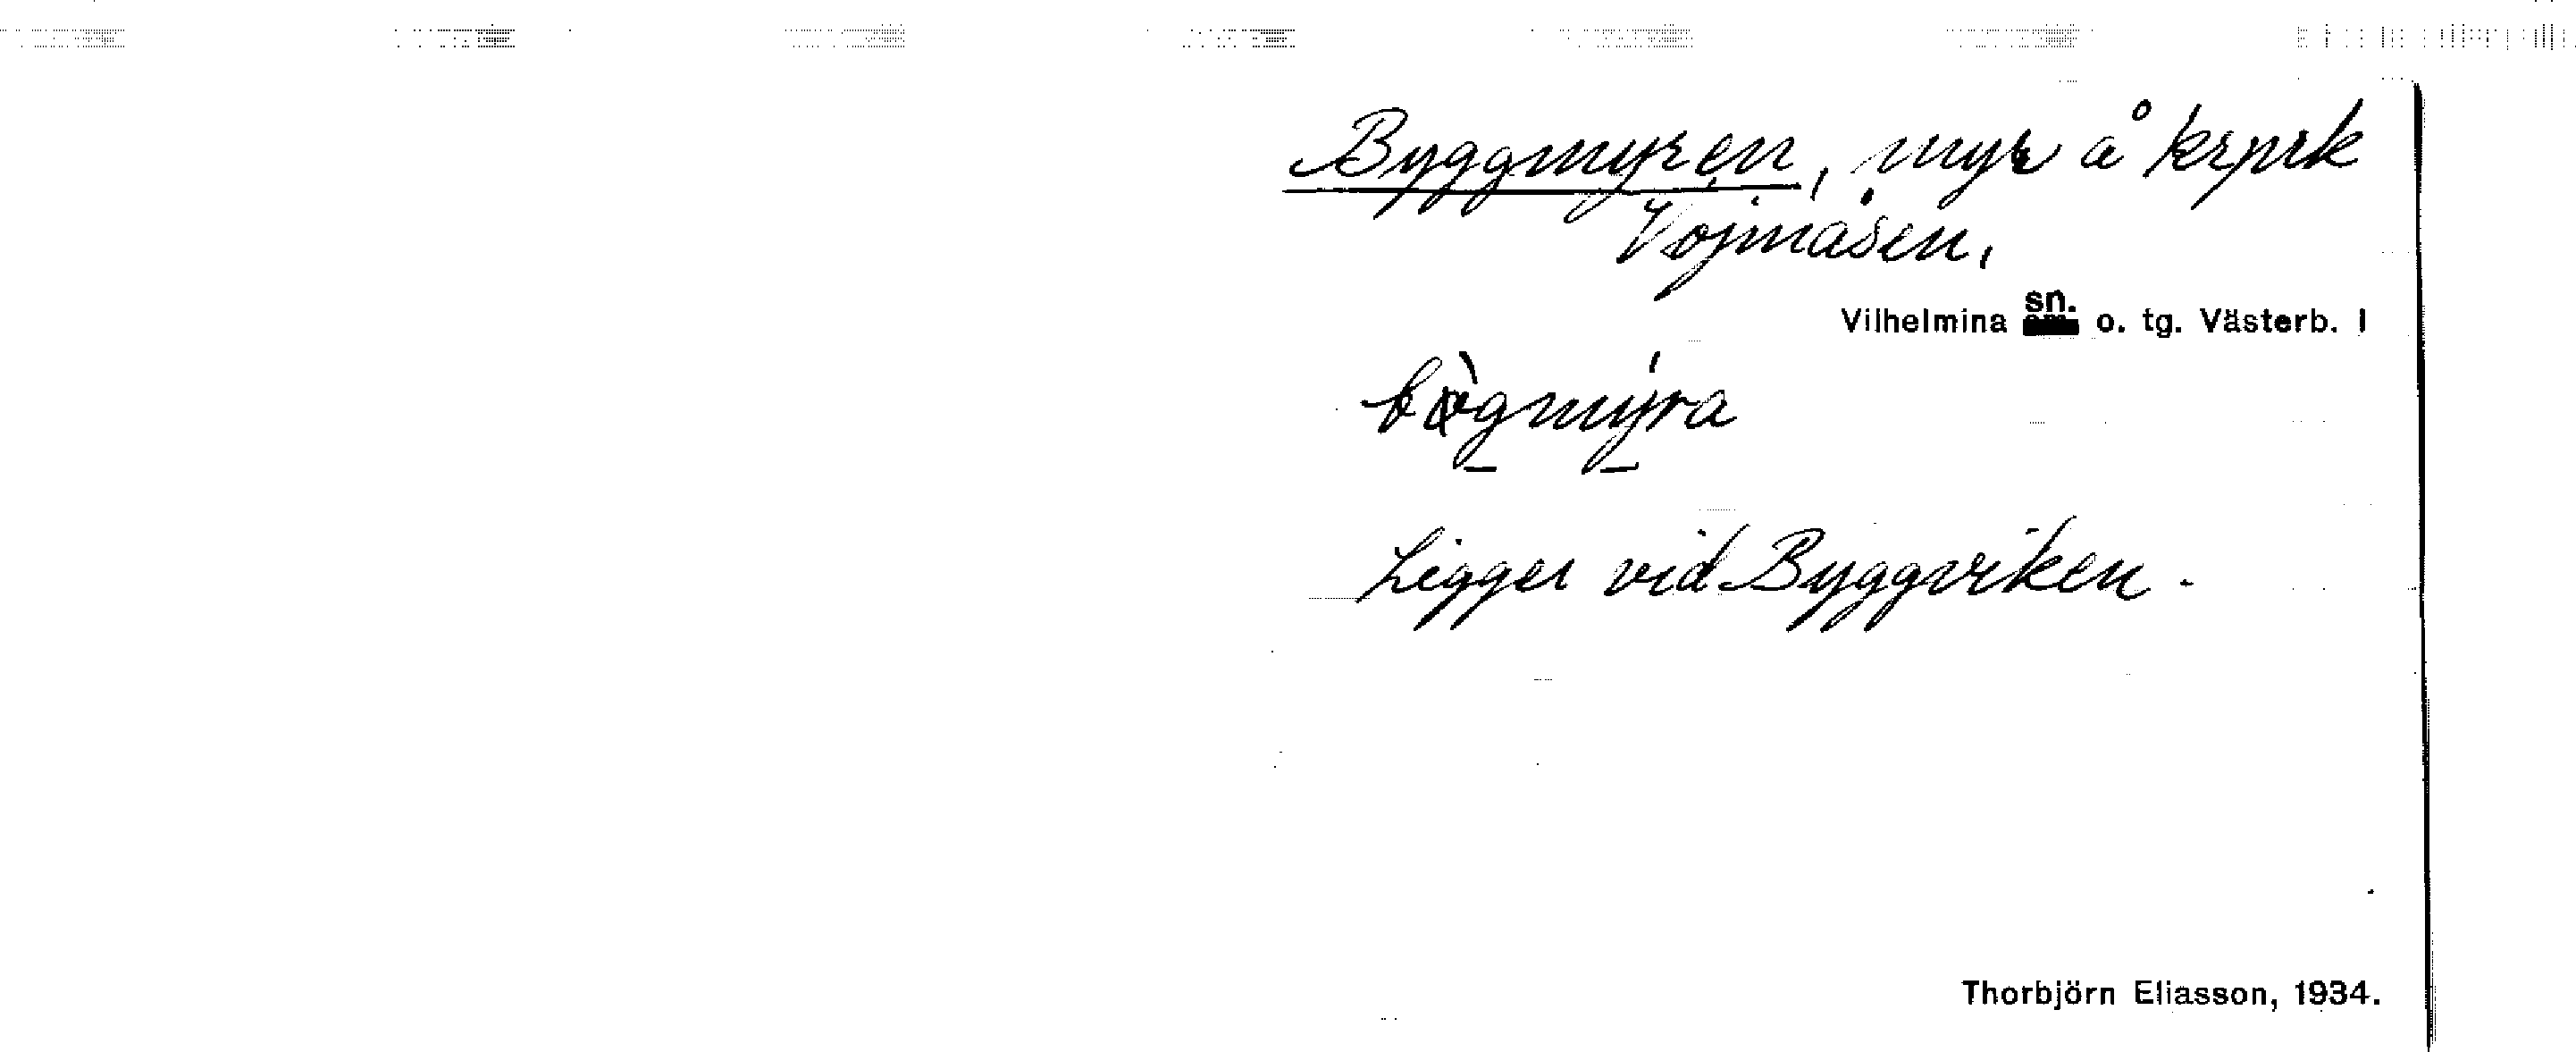 Byggmyren, myr å krprk
Vojmåsen,
Vilhelmina sn. o. tg. Västerb. l
bògmýra
Ligger vid Byggviken.
Thorbjörn Eliasson, 1934.